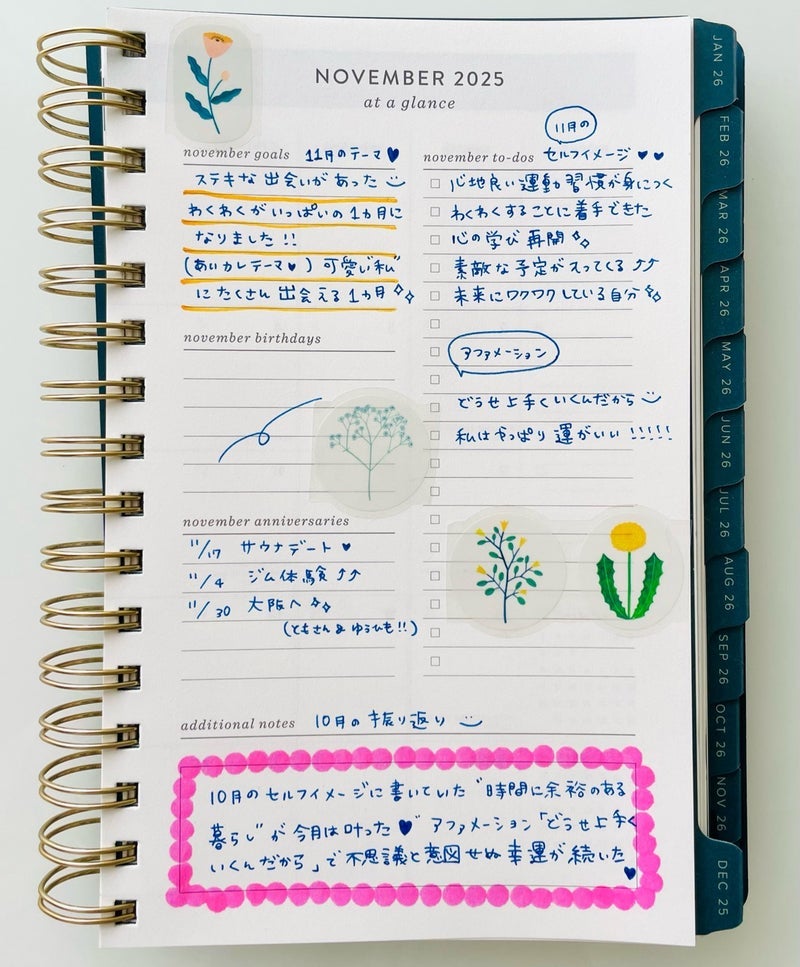 NOVEMBER 2025
at a glance
november goals 11月のテーマ♥
ステキな出会いがあった
わくわくがいっぱいの1ヵ月に
なりました!!
(あいカレテーマ♥) 可愛い私"
にたくさん出会える1ヵ月
november birthdays
november anniversaries
11/17 サウナデート♥
11/4 ジム体験⤴⤴
11/30 大阪へ
(ともさん& ゆうひも!!)
november to-dos 11月の
セルフイメージ♥♥
心地良い運動習慣が身につく
わくわくすることに着手できた
心の学び再開
素敵な予定が入ってくる⤴⤴
未来にワクワクしている自分
アファメーション
どうせ上手くいくんだから
私はやっぱり運がいい!!!!!
additional notes 10月の振り返り
10月のセルフイメージに書いていた"時間に余裕のある
暮らし"が今月は叶った♥ アファメーション「どうせ上手く
いくんだから」で不思議と意図せぬ幸運が続いた
♥
JAN 26
FEB 26
MAR 26
APR 26
MAY 26
JUN 26
JUL 26
AUG 26
SEP 26
OCT 26
NOV 26
DEC 25